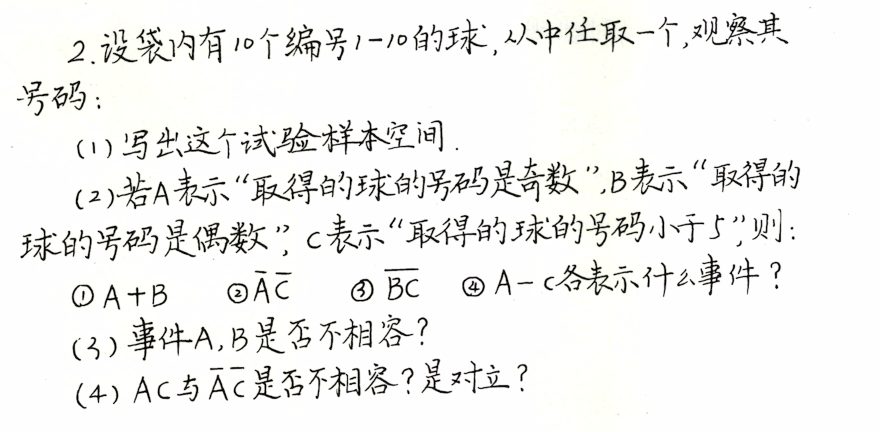 2.设袋内有10个编号1-10的球,从中任取一个,观察其
号码:
(1)写出这个试验样本空间.
(2)若A表示“取得的球的号码是奇数”,B表示“取得的
球的号码是偶数”,C表示“取得的球的号码小于5”,则:
① A+B ② A̅ C̅ ③ B̅C̅ ④ A-C各表示什么事件?
(3)事件A,B是否不相容?
(4) AC与A̅ C̅是否不相容?是对立?